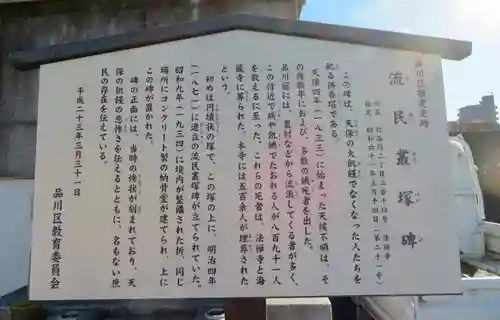 品川区指定史跡
流民叢塚碑
所在 北品川二丁目二番十四号 法禅寺
指定 昭和六十一年三月十四日(第二十一号)
この碑は、天保の大飢饉でなくなった人たちを
祀る供養塔である。
天保四年(一八三三)に始まった天候不順は、そ
の後数年におよび、多数の餓死者を出した。
品川宿には、農村などから流浪してくる者が多く、
この付近で病や飢餓でたおれる人が八百九十一人
を数えるに至った。これらの死者は、法禅寺と海
蔵寺に葬られた。本寺には五百余人が埋葬された
という。
初めは円墳状の塚で、この塚の上に、明治四年
(一八七一)に造立の流民叢塚碑が立てられていた。
昭和九年(一九三四)に境内が整備された折、同じ
場所にコンクリート製の納骨堂が建てられ、上に
この碑が置かれた。
碑の正面には、当時の惨状が刻まれており、天
保の飢饉の悲惨さを伝えるとともに、名もない庶
民の存在を伝えている。
平成二十三年三月三十一日
品川区教育委員会